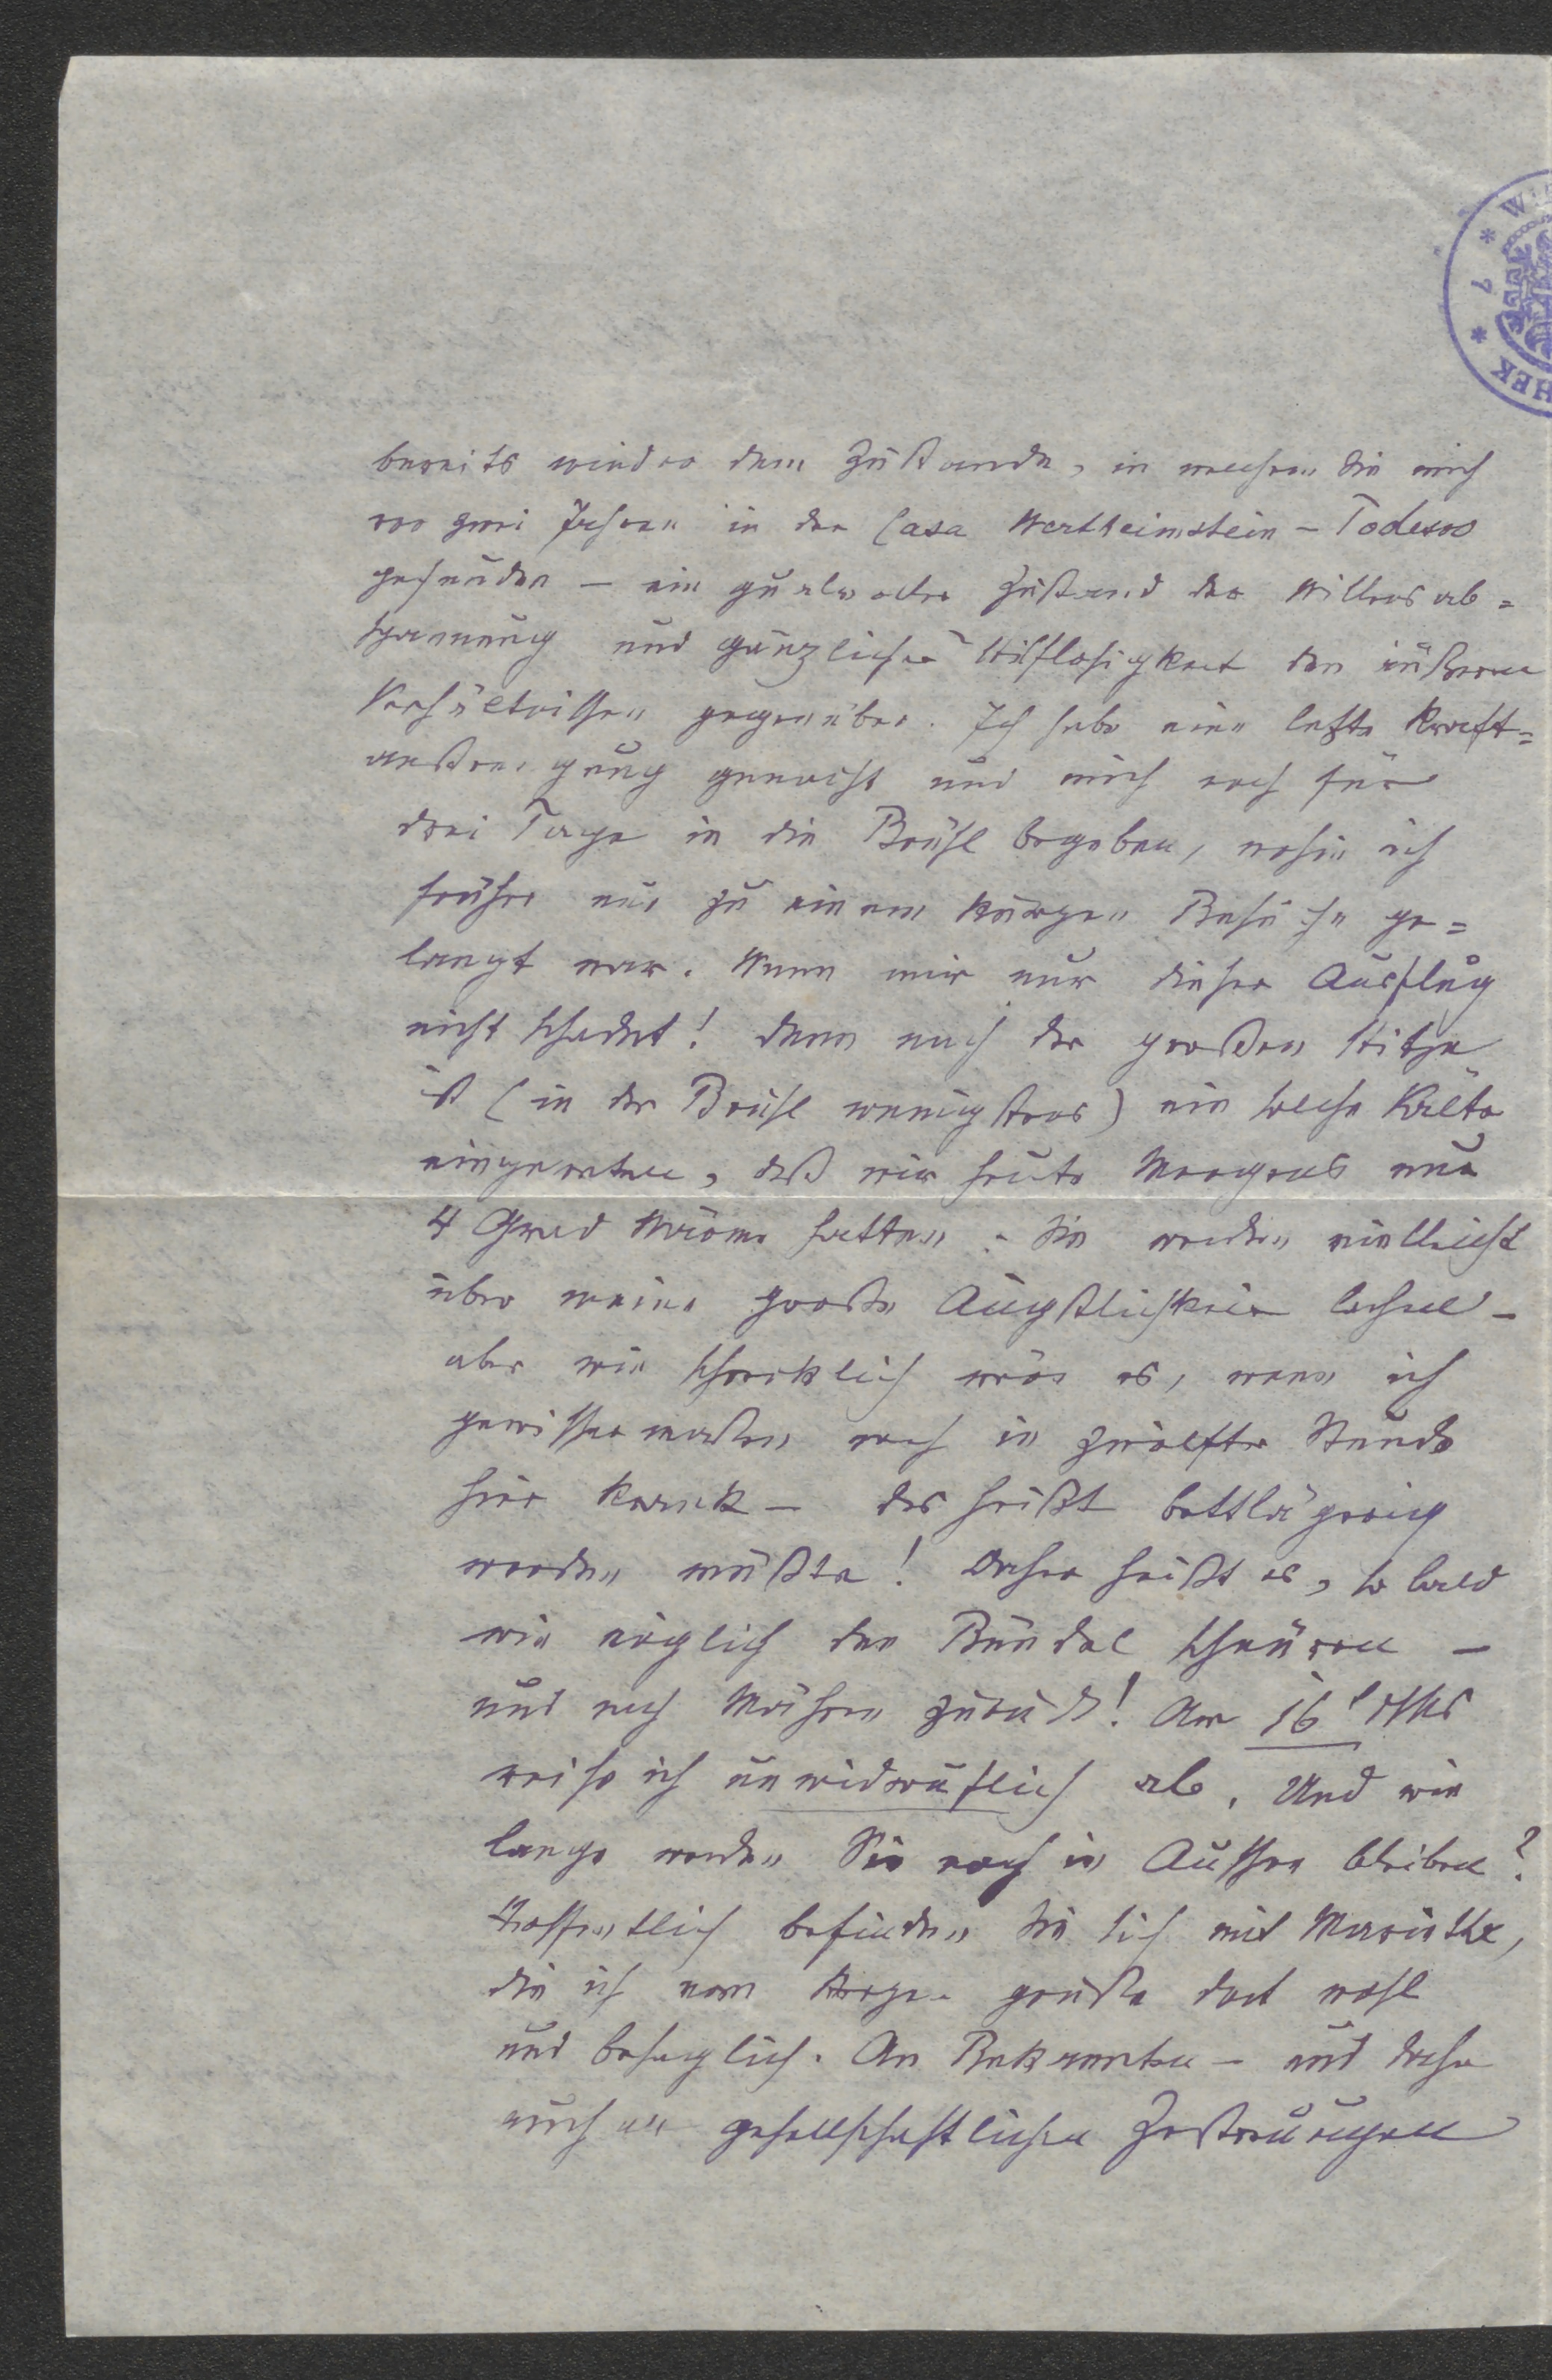 bereits wieder dem Zustande, in welchem Sie mich
vor zwei Jahren in der Casa Wertheimstein – Todesco
gefunden – ein qualvoller Zustand der Willensab=
spannung und gänzlicher Hilflosigkeit den äußeren
Verhältnissen gegenüber. Ich habe eine letzte Kraft=
anstrengung gemacht und mich noch für
drei Tage in die Brühl begeben, wohin ich
früher nur zu einem kurzen Besuche ge=
langt war. Wenn mir nur dieser Ausflug
nicht schadet! Denn nach der großen Hitze
ist (in der Brühl wenigstens) eine solche Kälte
eingetreten, daß wir heute Morgens nur
4 Grad Wärme hatten. Sie werden vielleicht
über meine große Ängstlichkeit lachen –
aber wie schrecklich wär es, wenn ich
gewissermaßen noch in zwölfter Stunde
hier krank – das heißt bettlägerig
werden müßte! Daher heißt es, so bald
wie möglich den Bündel schnüren –
und nach Mähren zurück! Am 16t
reise ich unwiderruflich ab. Und wie
lange werden Sie noch in Aussee bleiben?
Hoffentlich befinden Sie sich mit
die ich vom Herzen grüße dort wohl
und behaglich. An Bekannten – und daher
auch an gesellschaftlichen Zerstreuungen
* W
* 7 *
HEK